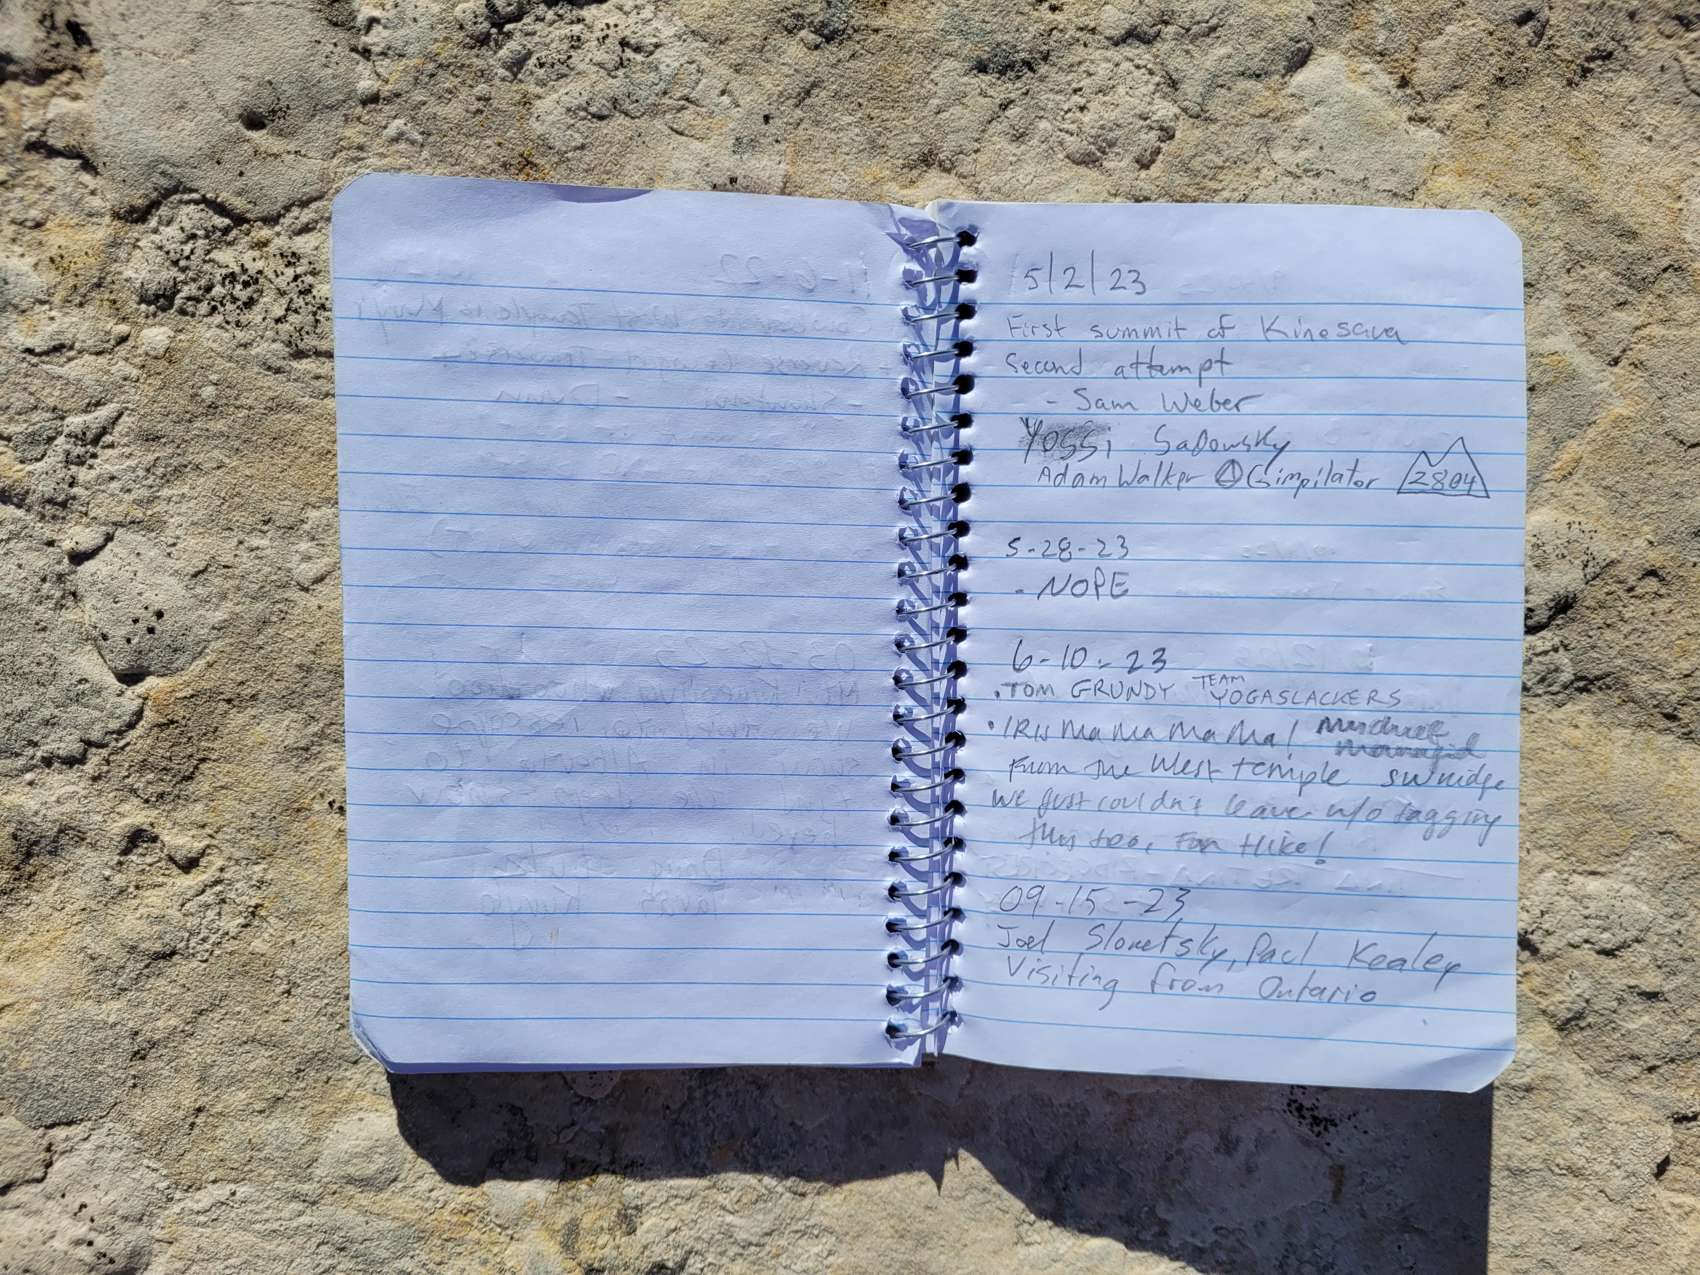 5/2/23
First summit of Kinesava
Second attempt
- Sam Weber
Yossi Sadowsky
Adam Walker Gimpilator 2804
5-28-23
- NOPE
6-10-23
• TOM GRUNDY TEAM YOGASLACKERS
• IRIS Ma Ma Ma Ma!
From the West temple SW ridge
We just couldn't leave w/o tagging
this too, Fun Hike!
09-15-23
Joel Slonetsky, Paul Kealey
Visiting from Ontario